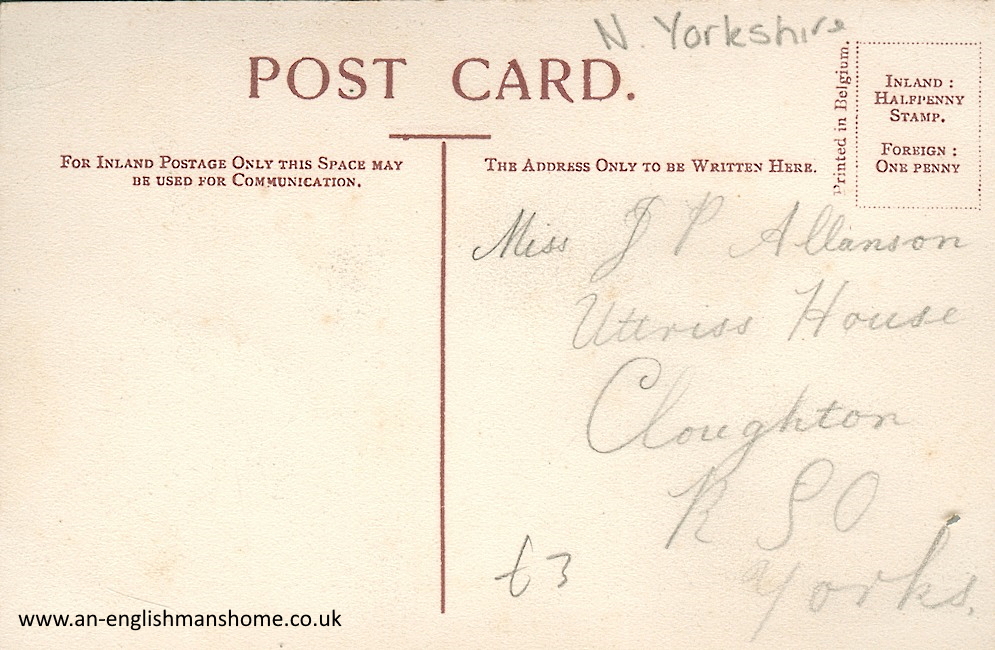 N. Yorkshire
POST CARD.
Printed in Belgium.
INLAND :
HALFPENNY
STAMP.
FOREIGN :
ONE PENNY
FOR INLAND POSTAGE ONLY THIS SPACE MAY
BE USED FOR COMMUNICATION.
THE ADDRESS ONLY TO BE WRITTEN HERE.
Miss J P Allanson
Uttriss House
Cloughton
R S O
Yorks.
£3
www.an-englishmanshome.co.uk